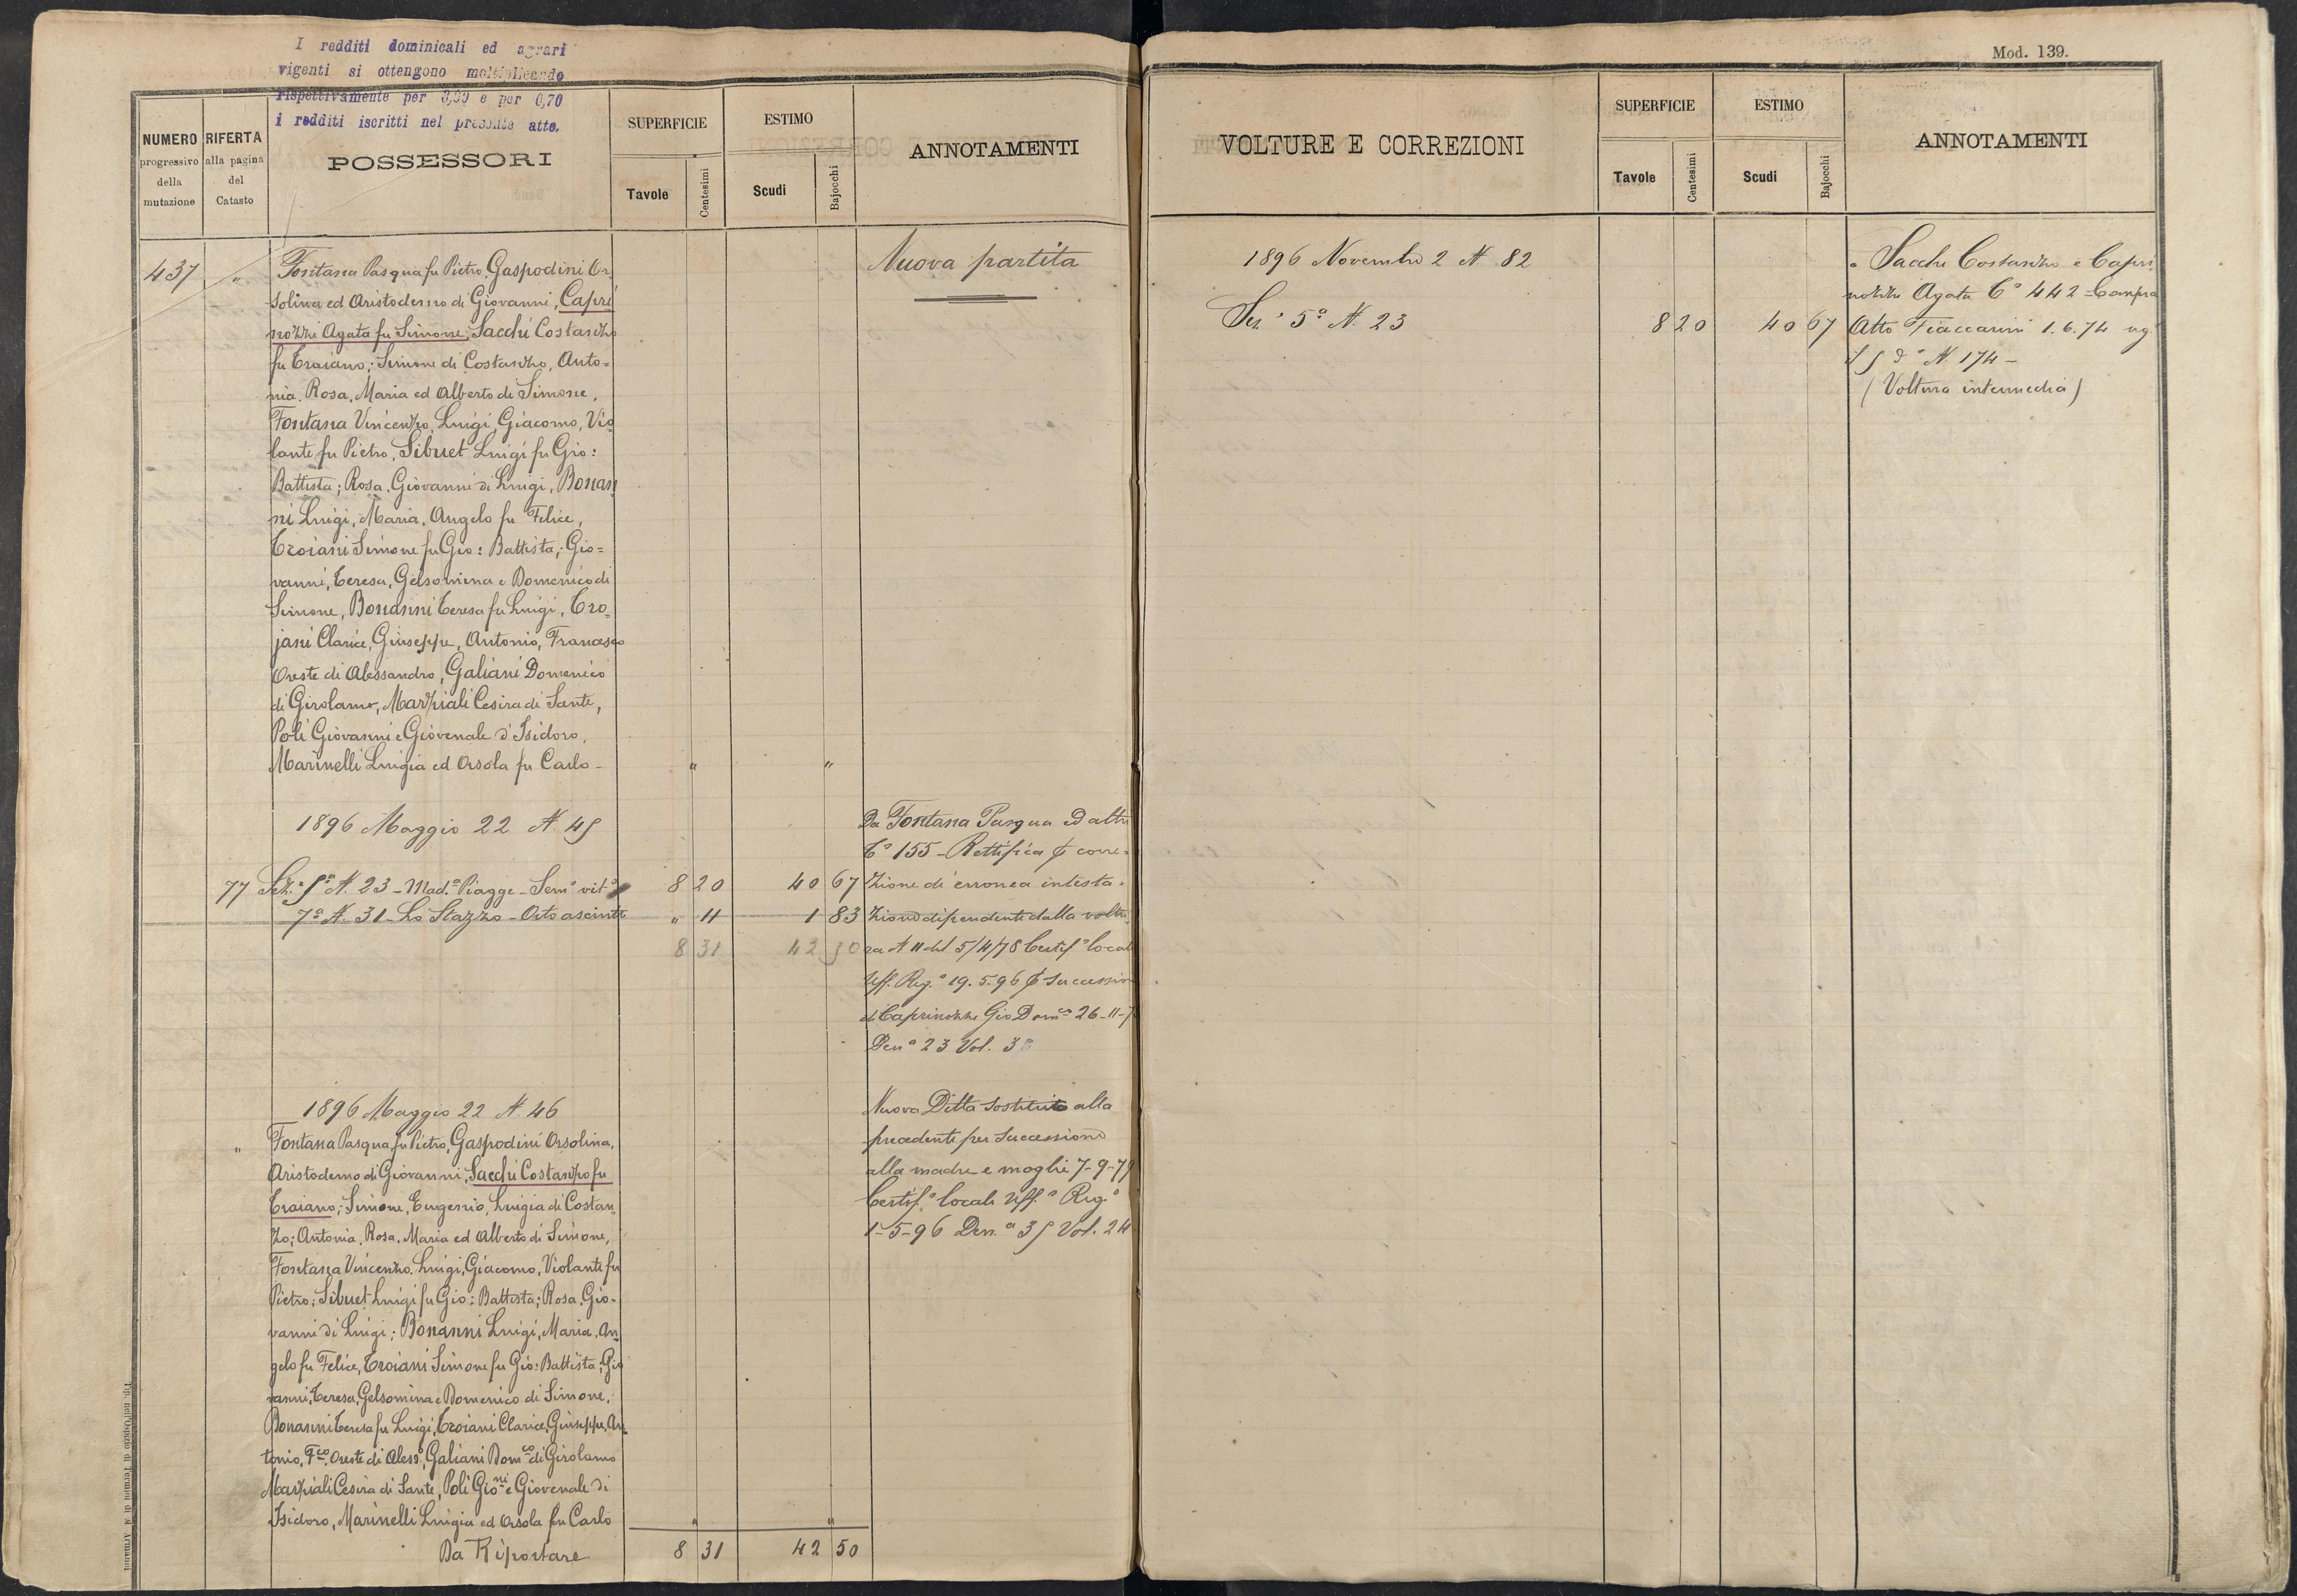 I redditi dominicali ed agrari
vigenti si ottengono moltiplicando
rispettivamente per 3,99 e per 0,70
i redditi iscritti nel presente atto.
NUMERO
progressivo
della
mutazione
RIFERTA
alla pagina
del
Catasto
POSSESSORI
SUPERFICIE
Tavole
Centesimi
ESTIMO
Scudi
Bajocchi
ANNOTAMENTI
437 " Fontana Pasqua fu Pietro, Gaspodini Or
solina ed Aristodemo di Giovanni, Capri
nozzi Agata fu Simone, Sacchi Costanzo
fu Traiano; Simone di Costanzo, Anto=
nia. Rosa, Maria ed Alberto di Simone,
Fontana Vincenzo, Luigi, Giacomo, Vio
lante fu Pietro, Sibuet Luigi fu Gio:
Battista; Rosa, Giovanni di Luigi, Bonan
ni Luigi, Maria, Angelo fu Felice,
Troiani Simone fu Gio: Battista; Gio=
vanni, Teresa, Gelsomina e Domenico di
Simone, Bonanni Teresa fu Luigi, Tro,
jani Clarice, Giuseppe, Antonio, Francesco
Oreste di Alessandro, Galiani Domenico
di Girolamo, Marziali Cesira di Sante,
Poli Giovanni e Giovenale d'Isidoro,
Marinelli Luigia ed Orsola fu Carlo - " "
Nuova partita
1896 Maggio 22 N. 45
77 Sez.e 5a N. 23 - Mad.a Piagge - Sem.o vit.o 8 20 40 67
7a N. 31 - Lo Stazzo - Orto asciutt " 11 1 83
8 31 42 50
Da Fontana Pasqua ed altri
C.o 155 - Rettifica p corre=
zione di erronea intesta=
zione dipendente dalla voltu
ra N 11 del 5/4/78 Certif.o local
Uff. Reg.o 19.5.96 p successio
di Caprinozzi Gio Dom.co 26-11-7
Den.a 23 Vol. 3
1896 Maggio 22 N. 46
" Fontana Pasqua fu Pietro, Gaspodini Orsolina,
Aristodemo di Giovanni, Sacchi Costanzo fu
Traiano; Simone, Eugenio, Luigia di Costan
zo; Antonia, Rosa, Maria ed Alberto di Simone,
Fontana Vincenzo, Luigi, Giacomo, Violante fu
Pietro; Sibuet Luigi fu Gio: Battista; Rosa, Gio-
vanni di Luigi; Bonanni Luigi, Maria, An
gelo fu Felice, Troiani Simone fu Gio: Battista; Gio
vanni, Teresa, Gelsomina e Domenico di Simone,
Bonanni Teresa fu Luigi, Troiani Clarice, Giuseppe, An
tonio, F.co, Oreste di Aless.o, Galiani Dom.co di Girolamo
Marziali Cesira di Sante, Poli Gio.ni e Giovenale di
Isidoro, Marinelli Luigia ed Orsola fu Carlo " "
Da Riportare 8 31 42 50
Nuova Ditta sostituita alla
precedente per successione
alla madre e moglie 7-9-79
Certif.o locale Uff.o Reg.o
1-5-96 Den.a 35 Vol. 24
Mod. 139.
VOLTURE E CORREZIONI
SUPERFICIE
Tavole
Centesimi
ESTIMO
Scudi
Bajocchi
ANNOTAMENTI
1896 Novembre 2 N 82
Sez.e 5a N. 23 8 20 40 67
a Sacchi Costanzo e Capri
nozzi Agata C.o 442 - Compra
Atto Fiaccarini 1.6.74 reg.
N. 174 -
(Voltura intermedia)